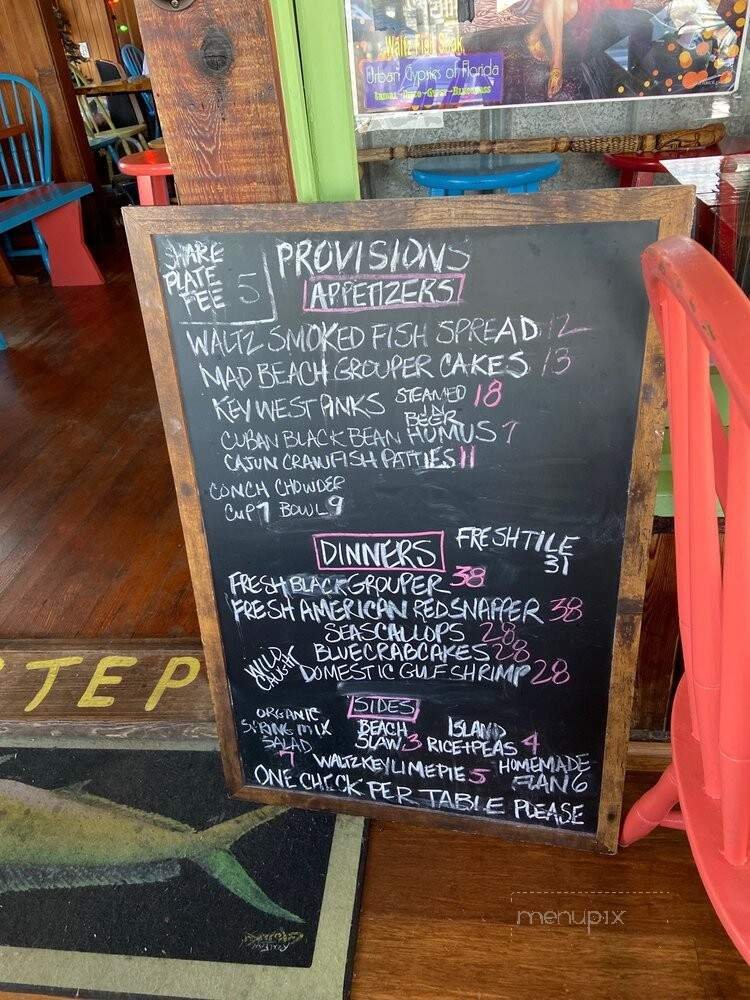 Waltz Fish Shak
Urban Gypsies of Florida
SHARE
PLATE
FEE 5
PROVISIONS
APPETIZERS
WALTZ SMOKED FISH SPREAD 12
MAD BEACH GROUPER CAKES 13
KEY WEST PINKS STEAMED IN BEER 18
CUBAN BLACK BEAN HUMUS 7
CAJUN CRAWFISH PATTIES 11
CONCH CHOWDER
CUP 7 BOWL 9
DINNERS
FRESH TILE
31
FRESH BLACK GROUPER 38
FRESH AMERICAN RED SNAPPER 38
SEA SCALLOPS 28
BLUE CRAB CAKES 28
WILD CAUGHT DOMESTIC GULF SHRIMP 28
SIDES
ORGANIC
SPRING MIX
SALAD
7
BEACH
SLAW 3
ISLAND
RICE+PEAS 4
WALTZ KEY LIME PIE 5
HOMEMADE
FLAN 6
ONE CHECK PER TABLE PLEASE
STEP
menupix